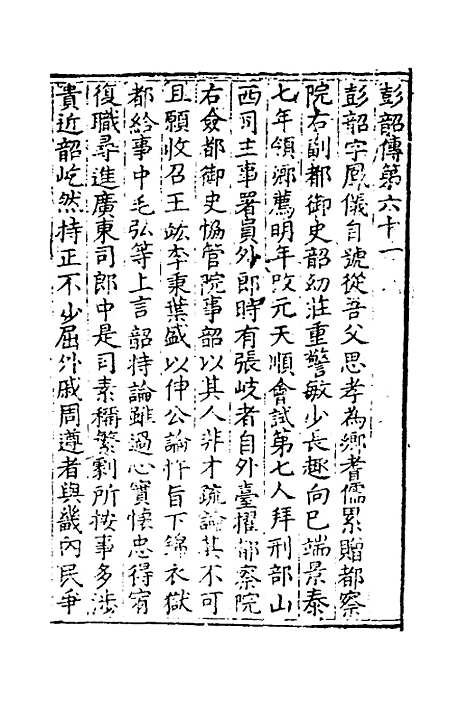 彭韶傳第六十一
彭韶字鳳儀自號從吾父思孝為鄉耆儒累贈都察
院右副都御史韶幼莊重警敏少長趣向已端景泰
七年領鄉薦明年改元天順會試第七人拜刑部山
西司主事署員外郎時有張岐者自外臺擢都察院
右僉都御史協管院事韶以其人非才疏論其不可
且願收召王竑李秉葉盛以伸公論忤旨下錦衣獄
都給事中毛弘等上言韶持論雖過心實懷忠得宥
復職尋進廣東司郎中是司素稱繁劇所按事多涉
貴近韶屹然持正不少屈外戚周遵者與畿內民爭